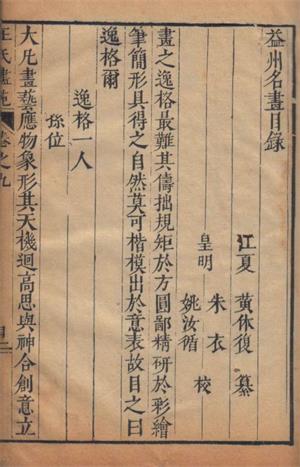 益州名畫目錄
江夏 黃休復 纂
朱衣
皇明 校
姚汝循
畫之逸格最難其儔拙規矩於方圓鄙精研於彩繪
筆簡形具得之自然莫可楷模出於意表故目之曰
逸格爾
逸格一人
孫位
大凡畫藝應物象形其天機迥高思與神合創意立
王氏畫苑 卷之九